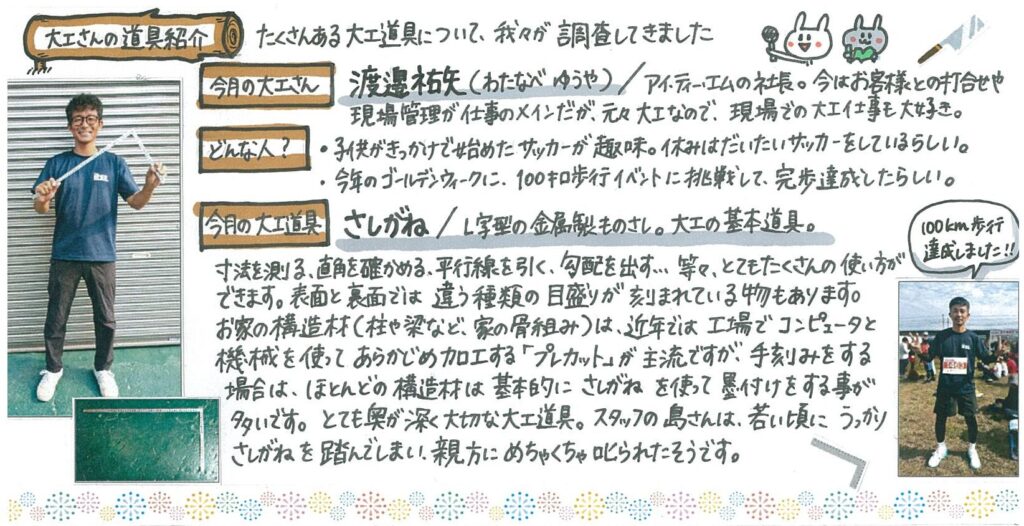 大工さんの道具紹介
たくさんある大工道具について、我々が調査してきました
今月の大工さん
渡邉祐矢(わたなべ ゆうや)/アイ.ティー.エムの社長。今はお客様との打合せや
現場管理が仕事のメインだが、元々大工なので、現場での大工仕事も大好き。
どんな人?
・子供がきっかけで始めたサッカーが趣味。休みはだいたいサッカーをしているらしい。
・今年のゴールデンウィークに、100キロ歩行イベントに挑戦して、完歩達成したらしい。
今月の大工道具
さしがね/L字型の金属製ものさし。大工の基本道具。
100km歩行
達成しました!!
寸法を測る、直角を確かめる、平行線を引く、勾配を出す…等々、とてもたくさんの使い方が
できます。表面と裏面では違う種類の目盛りが刻まれている物もあります。
お家の構造材(柱や梁など、家の骨組み)は、近年では工場でコンピュータと
機械を使ってあらかじめ加工する「プレカット」が主流ですが、手刻みをする
場合は、ほとんどの構造材は基本的にさしがねを使って墨付けをする事が
多いです。とても奥が深く大切な大工道具。スタッフの島さんは、若い頃にうっかり
さしがねを踏んでしまい、親方にめちゃくちゃ叱られたそうです。